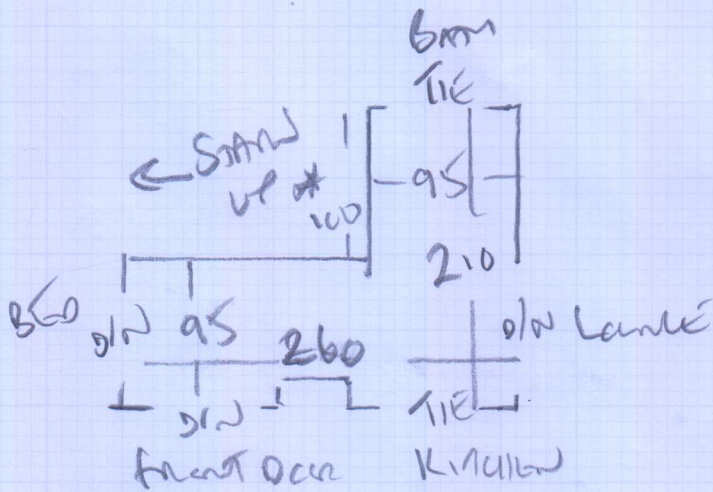 BATH
TIE
← STAIRS
UP
100
95
210
BED
D/N 95
260
D/N LOUNGE
D/N
TIE
FRONT DOOR
KITCHEN